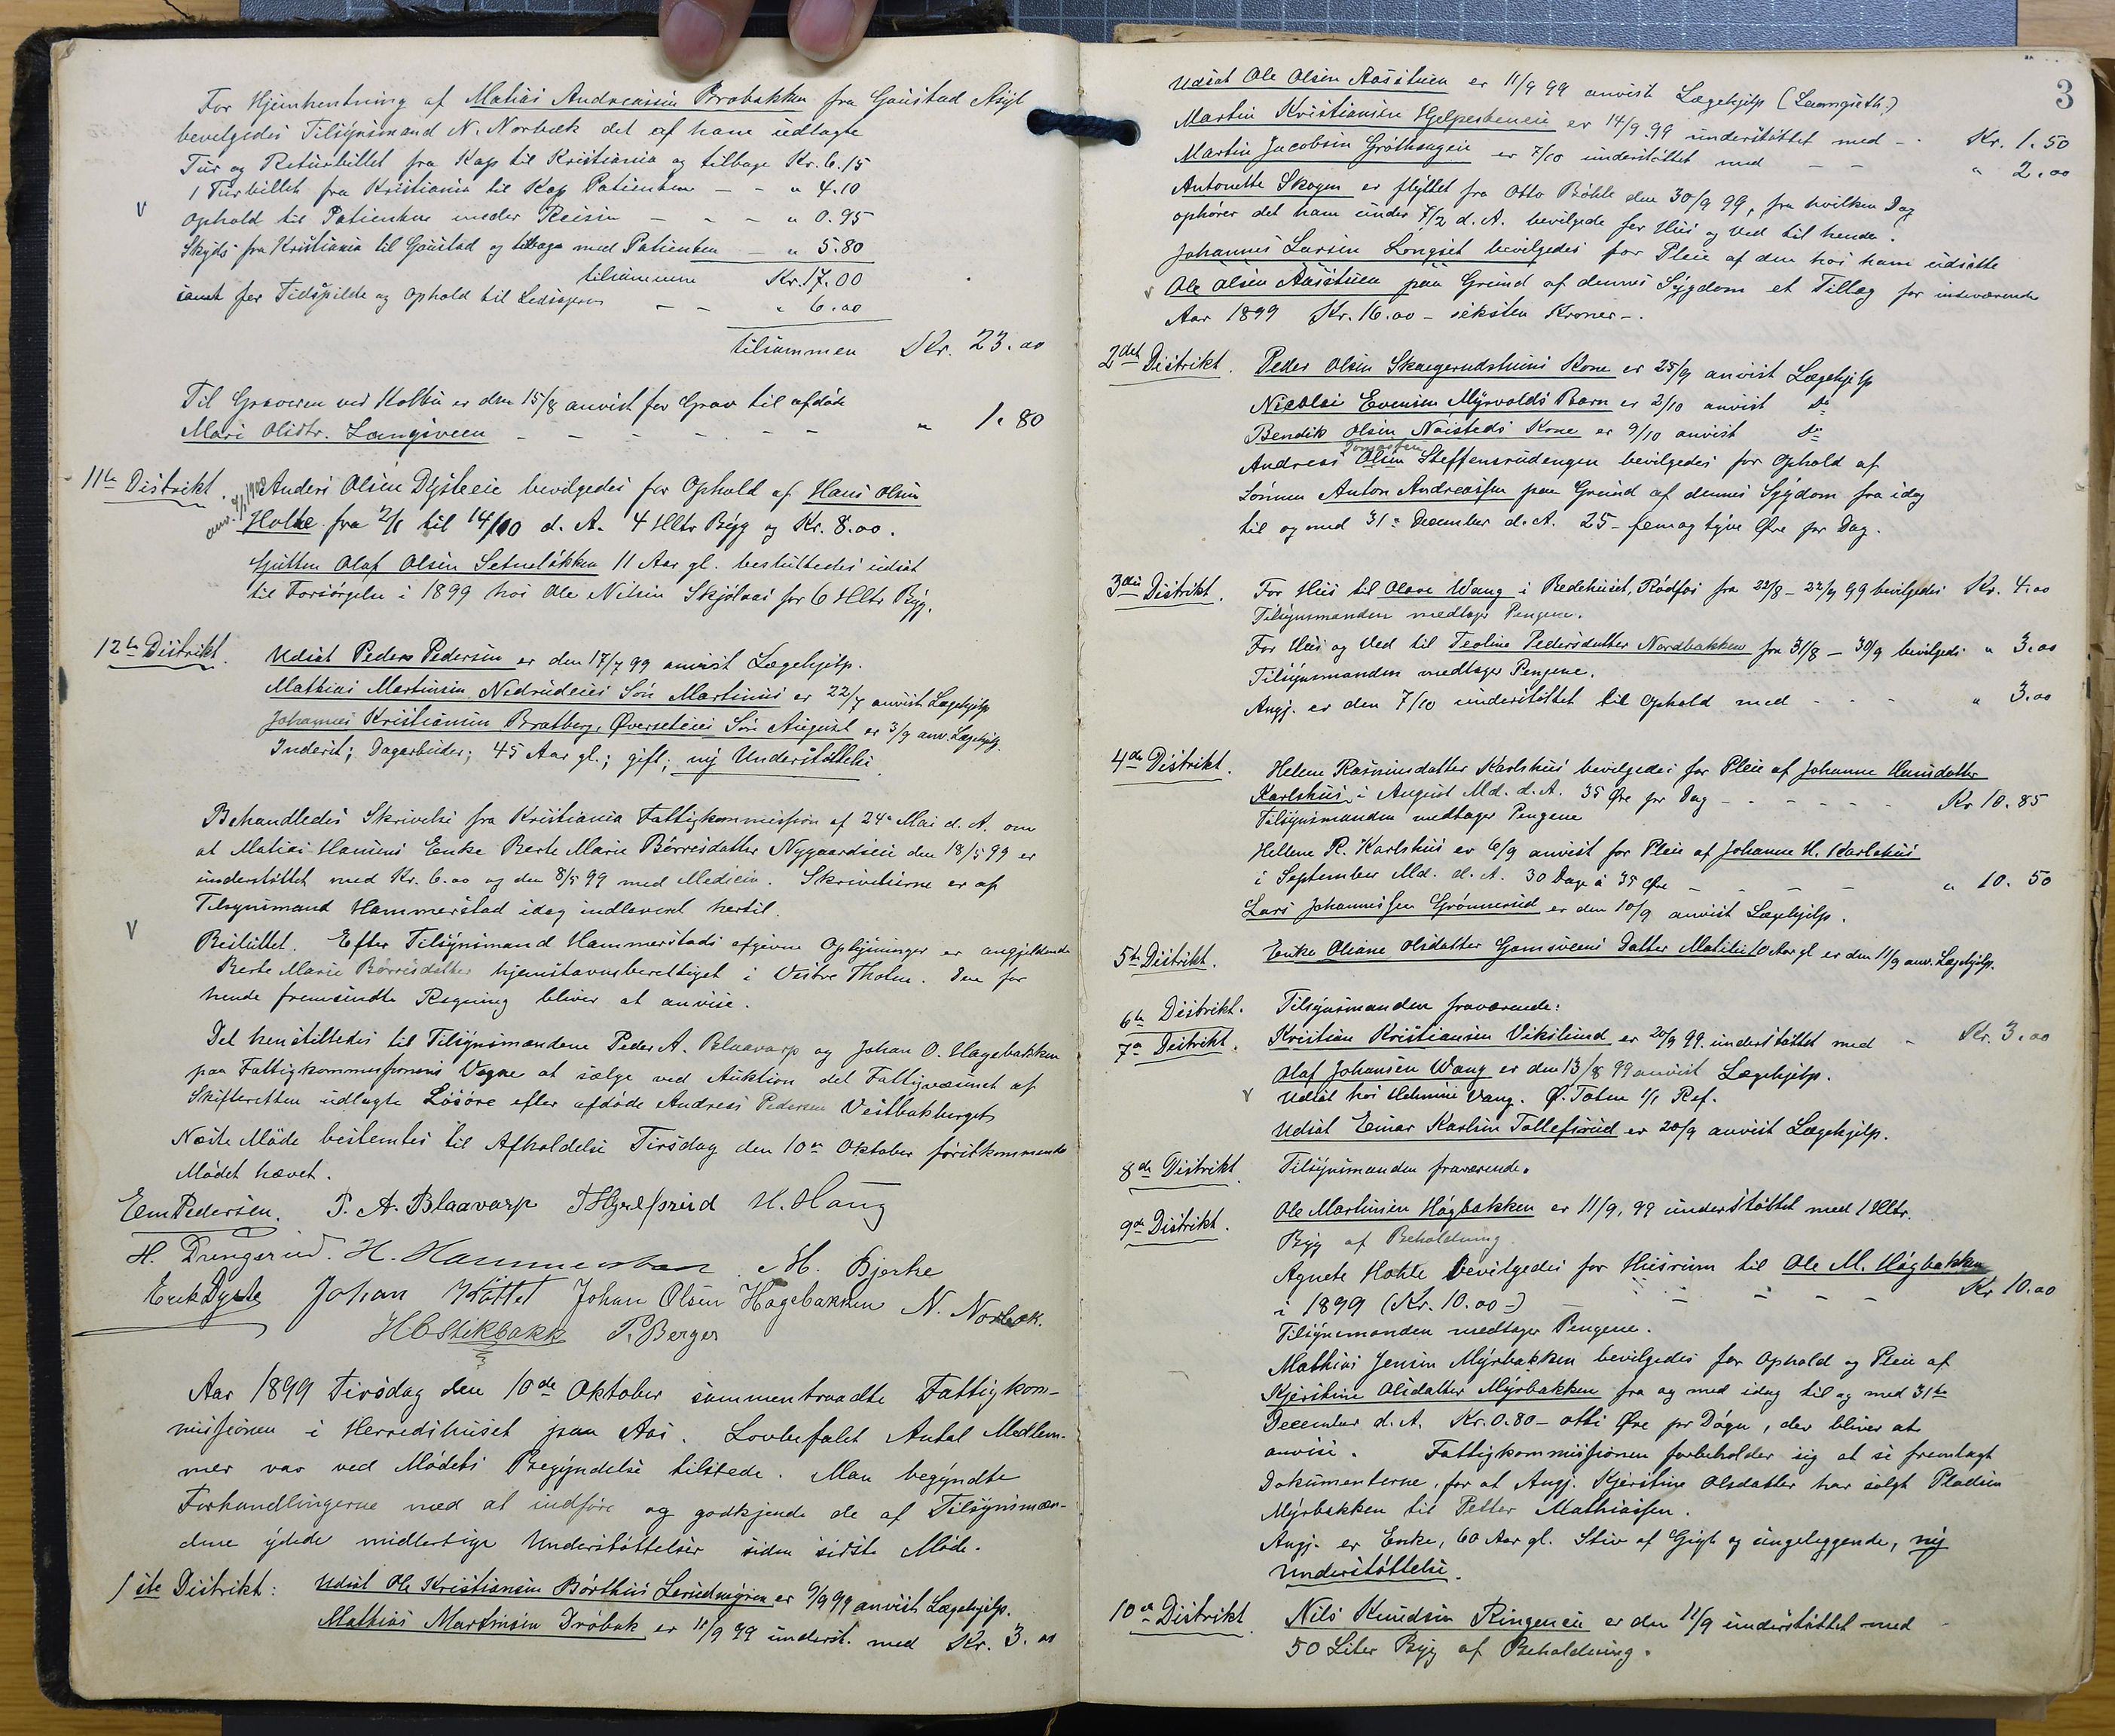 For Hjemhentning af Matias Andreassen Brobakken fra Gaustad Asyl
bevilgedes Tilsynsmand N. Norbæk det af ham udlagte
Tur og Returbillet fra Kap til Kristiania og tilbage Kr. 6.15
1 Turbillet fra Kristiania til Kap Patienten – – " 4.10
V Ophold til Patienten under Reisen – – – " 0.95
Skyds fra Kristiania til Gaustad og tilbage med Patienten – " 5.80
tilsammen Kr. 17.00
samt for Tidsspilde og Ophold til Ledsageren – – " 6.00
tilsammen Kr. 23.00
Til Graveren ved Kolbu er den 15/8 anvist for Grav til afdøde
Mari Olsdtr. Langsveen – – – – – – – " 1.80
11te Distrikt. Anders Olsen Dysteeie bevilgedes for Ophold af Hans Olsen
Holte fra 2/1 til 14/10 d. A. 4 Hltr Byg og Kr. 8.00.
Gutten Olaf Olsen Setneløkken 11 Aar gl. besluttedes udsat
til Forsørgelse i 1899 hos Ole Nilsen Skjølaas for 6 Hltr Byg.
12te Distrikt. Udsat Peder Pedersen er den 17/7 99 anvist Lægehjelp.
Mathias Martinsen Nedrudeies Søn Martinus er 22/7 anvist Lægehjelp
Johannes Kristiansen Bratberg, Øverseteies Søn August er 3/9 anv. Lægehjelp.
Inderst; Dagarbeider; 45 Aar gl.; gift; ny Understøttelse.
Behandledes Skrivelse fra Kristiania Fattigkommission af 24de Mai d. A. om
at Matias Hansens Enke Berte Marie Børresdatter Nygaardseie den 18/5 99 er
understøttet med Kr. 6.00 og den 8/5 99 med Medicin. Skrivelserne er af
Tilsynsmand Hammerstad idag indleveret hertil.
V Besluttet. Efter Tilsynsmand Hammerstads afgivne Oplysninger er angjeldende
Berte Marie Børresdatter hjemstavnsberettiget i Vestre Thoten. Den for
hende fremsendte Regning bliver at anvise.
Det henstilledes til Tilsynsmændene Peder A. Blaavarp og Johan O. Hagebakken
paa Fattigkommissionens Vegne at sælge ved Auktion det Fattigvæsenet af
Skifteretten udlagte Løsøre efter afdøde Andreas Pedersen Vestbakberget
Næste Møde bestemtes til Afholdelse Tirsdag den 10de Oktober førstkommende
Mødet hævet.
Em Pedersen. P. A. Blaavarp H. Haug
H. Drengsrud. H. Hammerstad. M. Bjerke
Erik Dyste Johan Køttet Johan Olsen Hagebakken N. Norbæk.
H. O. Stikbakk P. Berger
Aar 1899 Tirsdag den 10de Oktober sammentraadte Fattigkom-
missionen i Herredshuset paa Aas. Lovbefalet Antal Medlem-
mer var ved Mødets Begyndelse tilstede. Man begyndte
Forhandlingerne med at indføre og godkjende de af Tilsynsmæn-
dene ydede midlertige Understøttelser siden sidste Møde.
1ste Distrikt: Udsat Ole Kristiansen Børthus Lerudmyren er 9/9 99 anvist Lægehjelp.
Mathias Martinsen Drøbak er 11/9 99 underst. med Kr. 3.00
3
Udsat Ole Olsen Aasstuen er 11/9 99 anvist Lægehjelp
Martin Kristiansen Hjelpesteneie er 14/9 99 understøttet med – – Kr. 1.50
Martin Jacobsen Grøthaugen er 7/10 understøttet med – – " 2.00
Antonette Skogen er flyttet fra Otto Bøhle den 30/9 99, fra hvilken Dag
ophører det ham under 7/2 d. A. bevilgede for Hus og Ved til hende.
Johannes Larsen Longset bevilgedes for Pleie af den hos ham udsatte
V Ole Olsen Aasstuen paa Grund af dennes Sygdom et Tillæg for indeværende
Aar 1899 Kr. 16.00 – seksten Kroner –.
2det Distrikt. Peder Olsen Skaugerudstuens Kone er 25/9 anvist Lægehjelp
Nicolai Evensen Myrvolds Barn er 2/10 anvist Do
Bendik Olsen Nøisteds Kone er 9/10 anvist Do
Andreas Olsen Steffensrudengen bevilgedes for Ophold af
Sønnen Anton Andreassen paa Grund af dennes Sygdom fra idag
til og med 31te December d. A. 25 – fem og tyve Øre pr Dag.
3die Distrikt. For Hus til Olave Wang i Bedehuset, Rødfos fra 22/8 – 22/9 99 bevilgedes Kr. 4.00
Tilsynsmanden medtager Pengene.
For Hus og Ved til Teoline Pedersdatter Nordbakken fra 31/8 – 30/9 bevilgedes " 3.00
Tilsynsmanden medtager Pengene.
Angj. er den 7/10 understøttet til Ophold med – – – " 3.00
4de Distrikt. Helene Rasmusdatter Karlshus bevilgedes for Pleie af Johanne Hansdatter
Karlshus i August Md. d. A. 35 Øre pr Dag – – – – – Kr 10.85
Tilsynsmanden medtager Pengene
Hellene R. Karlshus er 6/9 anvist for Pleie af Johanne H. Karlshus
i September Md. d. A. 30 Dage à 35 Øre – – – – " 10.50
Lars Johannessen Grønnerud er den 10/9 anvist Lægehjelp.
5te Distrikt. Enke Oliane Olsdatter Gamsveens Datter Matilde 10 Aar gl er den 11/9 anv. Lægehjelp.
6te Distrikt. Tilsynsmanden fraværende:
7de Distrikt. Kristian Kristiansen Vikslund er 20/9 99. understøttet med – Kr. 3.00
Olaf Johansen Wang er den 13/8 99 anvist Lægehjelp.
V Udsat hos Helmine Vang. Ø. Toten 1/1 Ref.
Udsat Einar Karlsen Tollefsrud er 20/9 anvist Lægehjelp.
8de Distrikt Tilsynsmanden fraværende.
9de Distrikt. Ole Martinsen Høgbakken er 11/9, 99 understøttet med 1 Hltr.
Byg af Beholdning.
Agnete Holte bevilgedes for Husrum til Ole M. Høgbakken
i 1899 (Kr. 10.00 –) – – – – – Kr 10.00
Tilsynsmanden medtager Pengene.
Mathias Jensen Myrbakken bevilgedes for Ophold og Pleie af
Kjerstine Olsdatter Myrbakken fra og med idag til og med 31te
December d. A. Kr. 0.80 – otti Øre pr Døgn, der bliver at
anvise. Fattigkommissionen forbeholder sig at se fremlagt
Dokumenterne, for at Angj. Kjerstine Olsdatter har solgt Pladsen
Myrbakken til Petter Mathiassen.
Angj. er Enke, 60 Aar gl. Stiv af Gigt og sengeliggende, ny
Understøttelse.
10de Distrikt. Nils Knudsen Ringeneie er den 11/9 understøttet med
50 Liter Byg af Beholdning.